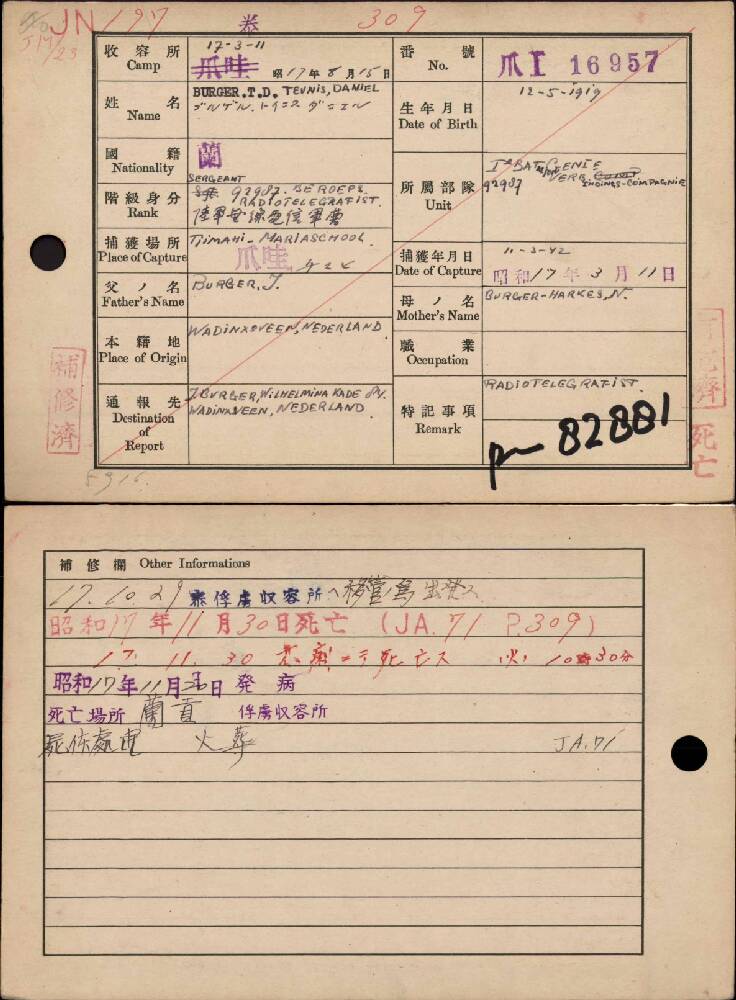 JN 197 泰 309
J 17/23
收容所 Camp 17-3-11 爪哇 昭17年8月15日
番號 No. 爪I 16957
姓名 Name BURGER.T.D. TEUNIS, DANIEL
生年月日 Date of Birth 12-5-1919
國籍 Nationality 蘭
階級身分 Rank SERGEANT 92987. BEROEPS. RADIOTELEGRAFIST.
所屬部隊 Unit 1e BAT. GENIE 92987 VERB. INDINGS-COMPAGNIE
捕獲場所 Place of Capture TJIMAHI - MARIASCHOOL. 爪哇
捕獲年月日 Date of Capture 11-3-42 昭和17年3月11日
父ノ名 Father's Name BURGER, J.
母ノ名 Mother's Name BURGER-HARKES, N.
本籍地 Place of Origin WADINXVEEN, NEDERLAND
職業 Occupation
通報先 Destination of Report J. BURGER, WILHELMINA KADE WADINXVEEN, NEDERLAND.
特記事項 Remark RADIOTELEGRAFIST.
82881
補修濟
死亡
補修欄 Other Informations
17.10.29 泰俘虜収容所ヘ移管ノ為出発ス
昭和17年11月30日死亡 (JA.71 P.309)
17. 11. 30 死亡ス 10時30分
昭和17年11月 日発病
死亡場所 俘虜収容所
屍体處置 火葬 JA.71